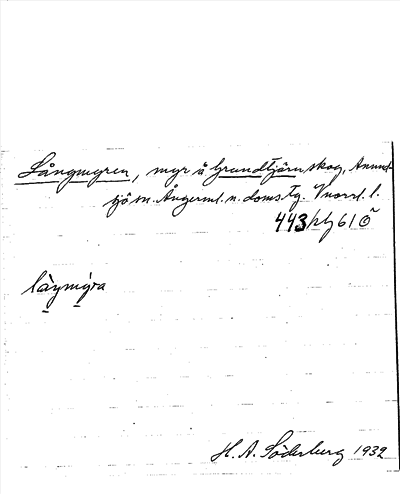 Långmyren, myr å Grundtjärn skog, Anund-
sjö sn. Ångerml. n. doms. tg. Vnorrl. l.
443
H. A. Söderberg 1932